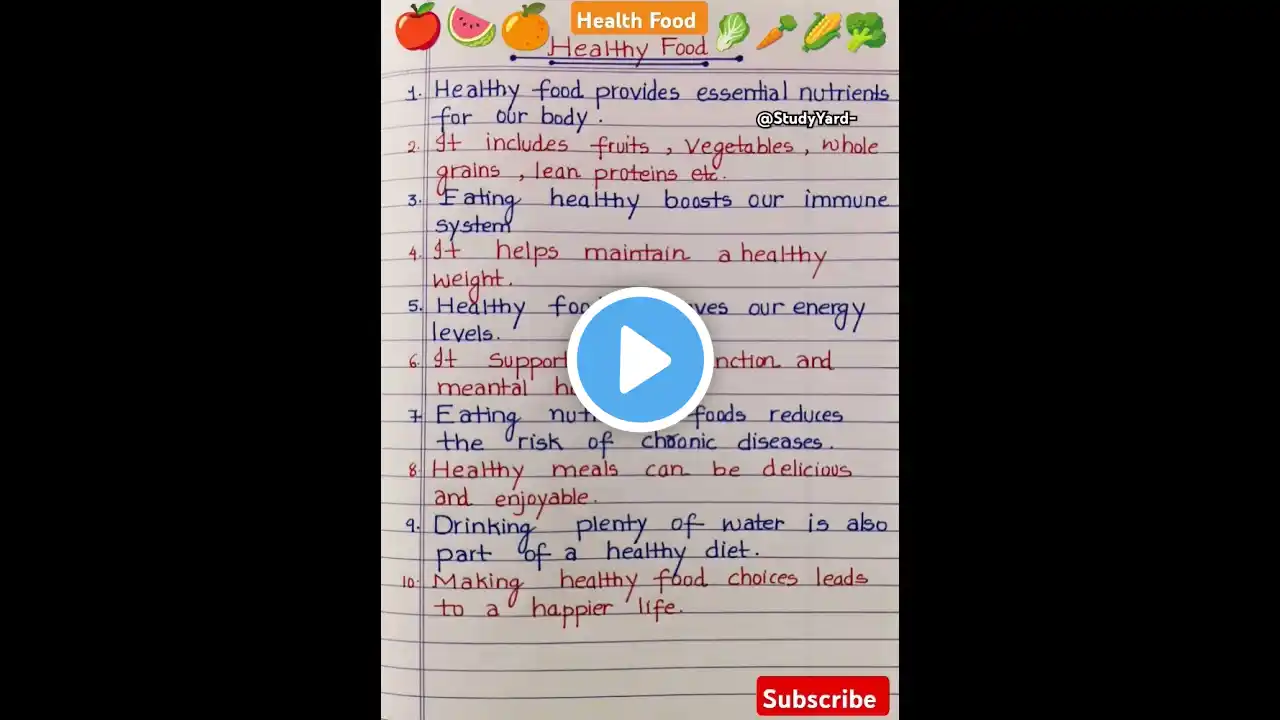 Health Food
Healthy Food
1. Healthy food provides essential nutrients
for our body.
@StudyYard-
2. It includes fruits, vegetables, whole
grains, lean proteins etc.
3. Eating healthy boosts our immune
system
4. It helps maintain a healthy
weight.
5. Healthy our energy
levels.
6. It and
meantal
7. Eating foods reduces
the risk of chronic diseases.
8. Healthy meals can be delicious
and enjoyable.
9. Drinking plenty of water is also
part of a healthy diet.
10. Making healthy food choices leads
to a happier life.
Subscribe